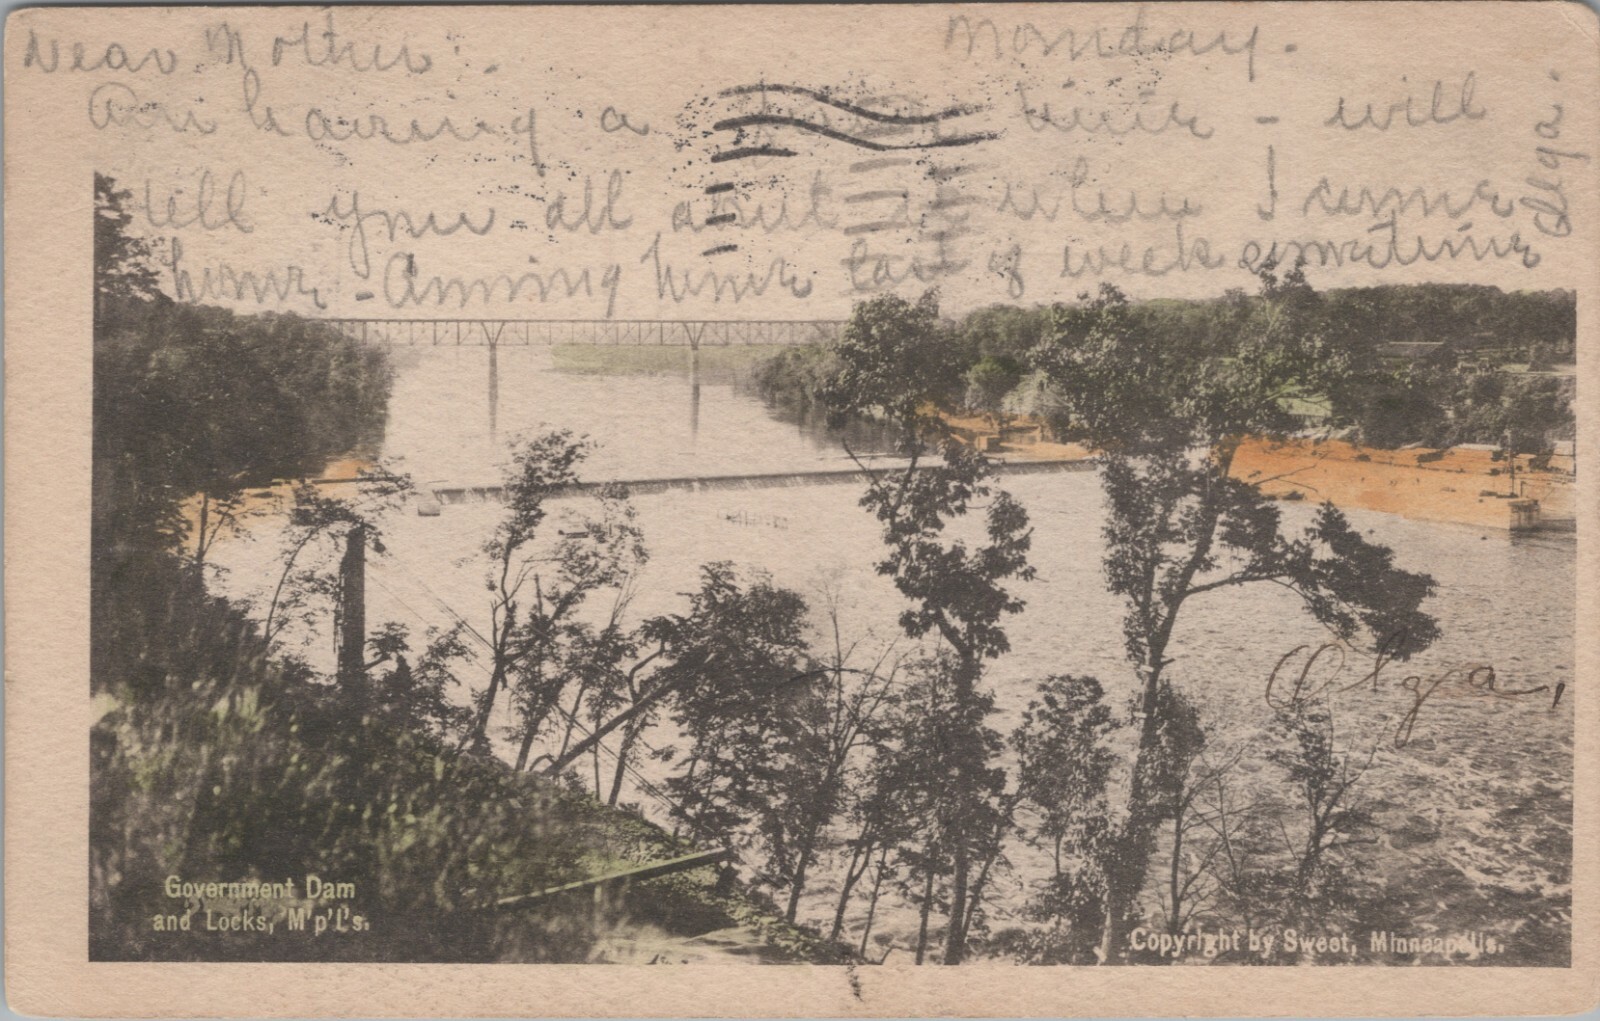 Dear Mother. Monday.
Am having a time - will
tell you all about it when I come
home - Coming home last of week sometime
Olga.
Olga,
Government Dam
and Locks, M'p'l's.
Copyright by Sweet, Minneapolis.